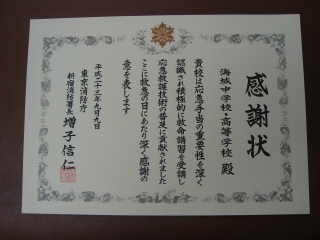 感謝状
海城中学校・高等学校 殿
貴校は応急手当の重要性を深く
認識され積極的に救命講習を受講し
応急救護技術の普及に貢献されました
ここに救急の日にあたり深く感謝の
意を表します
平成二十五年九月九日
東京消防庁
新宿消防署長 増子信仁